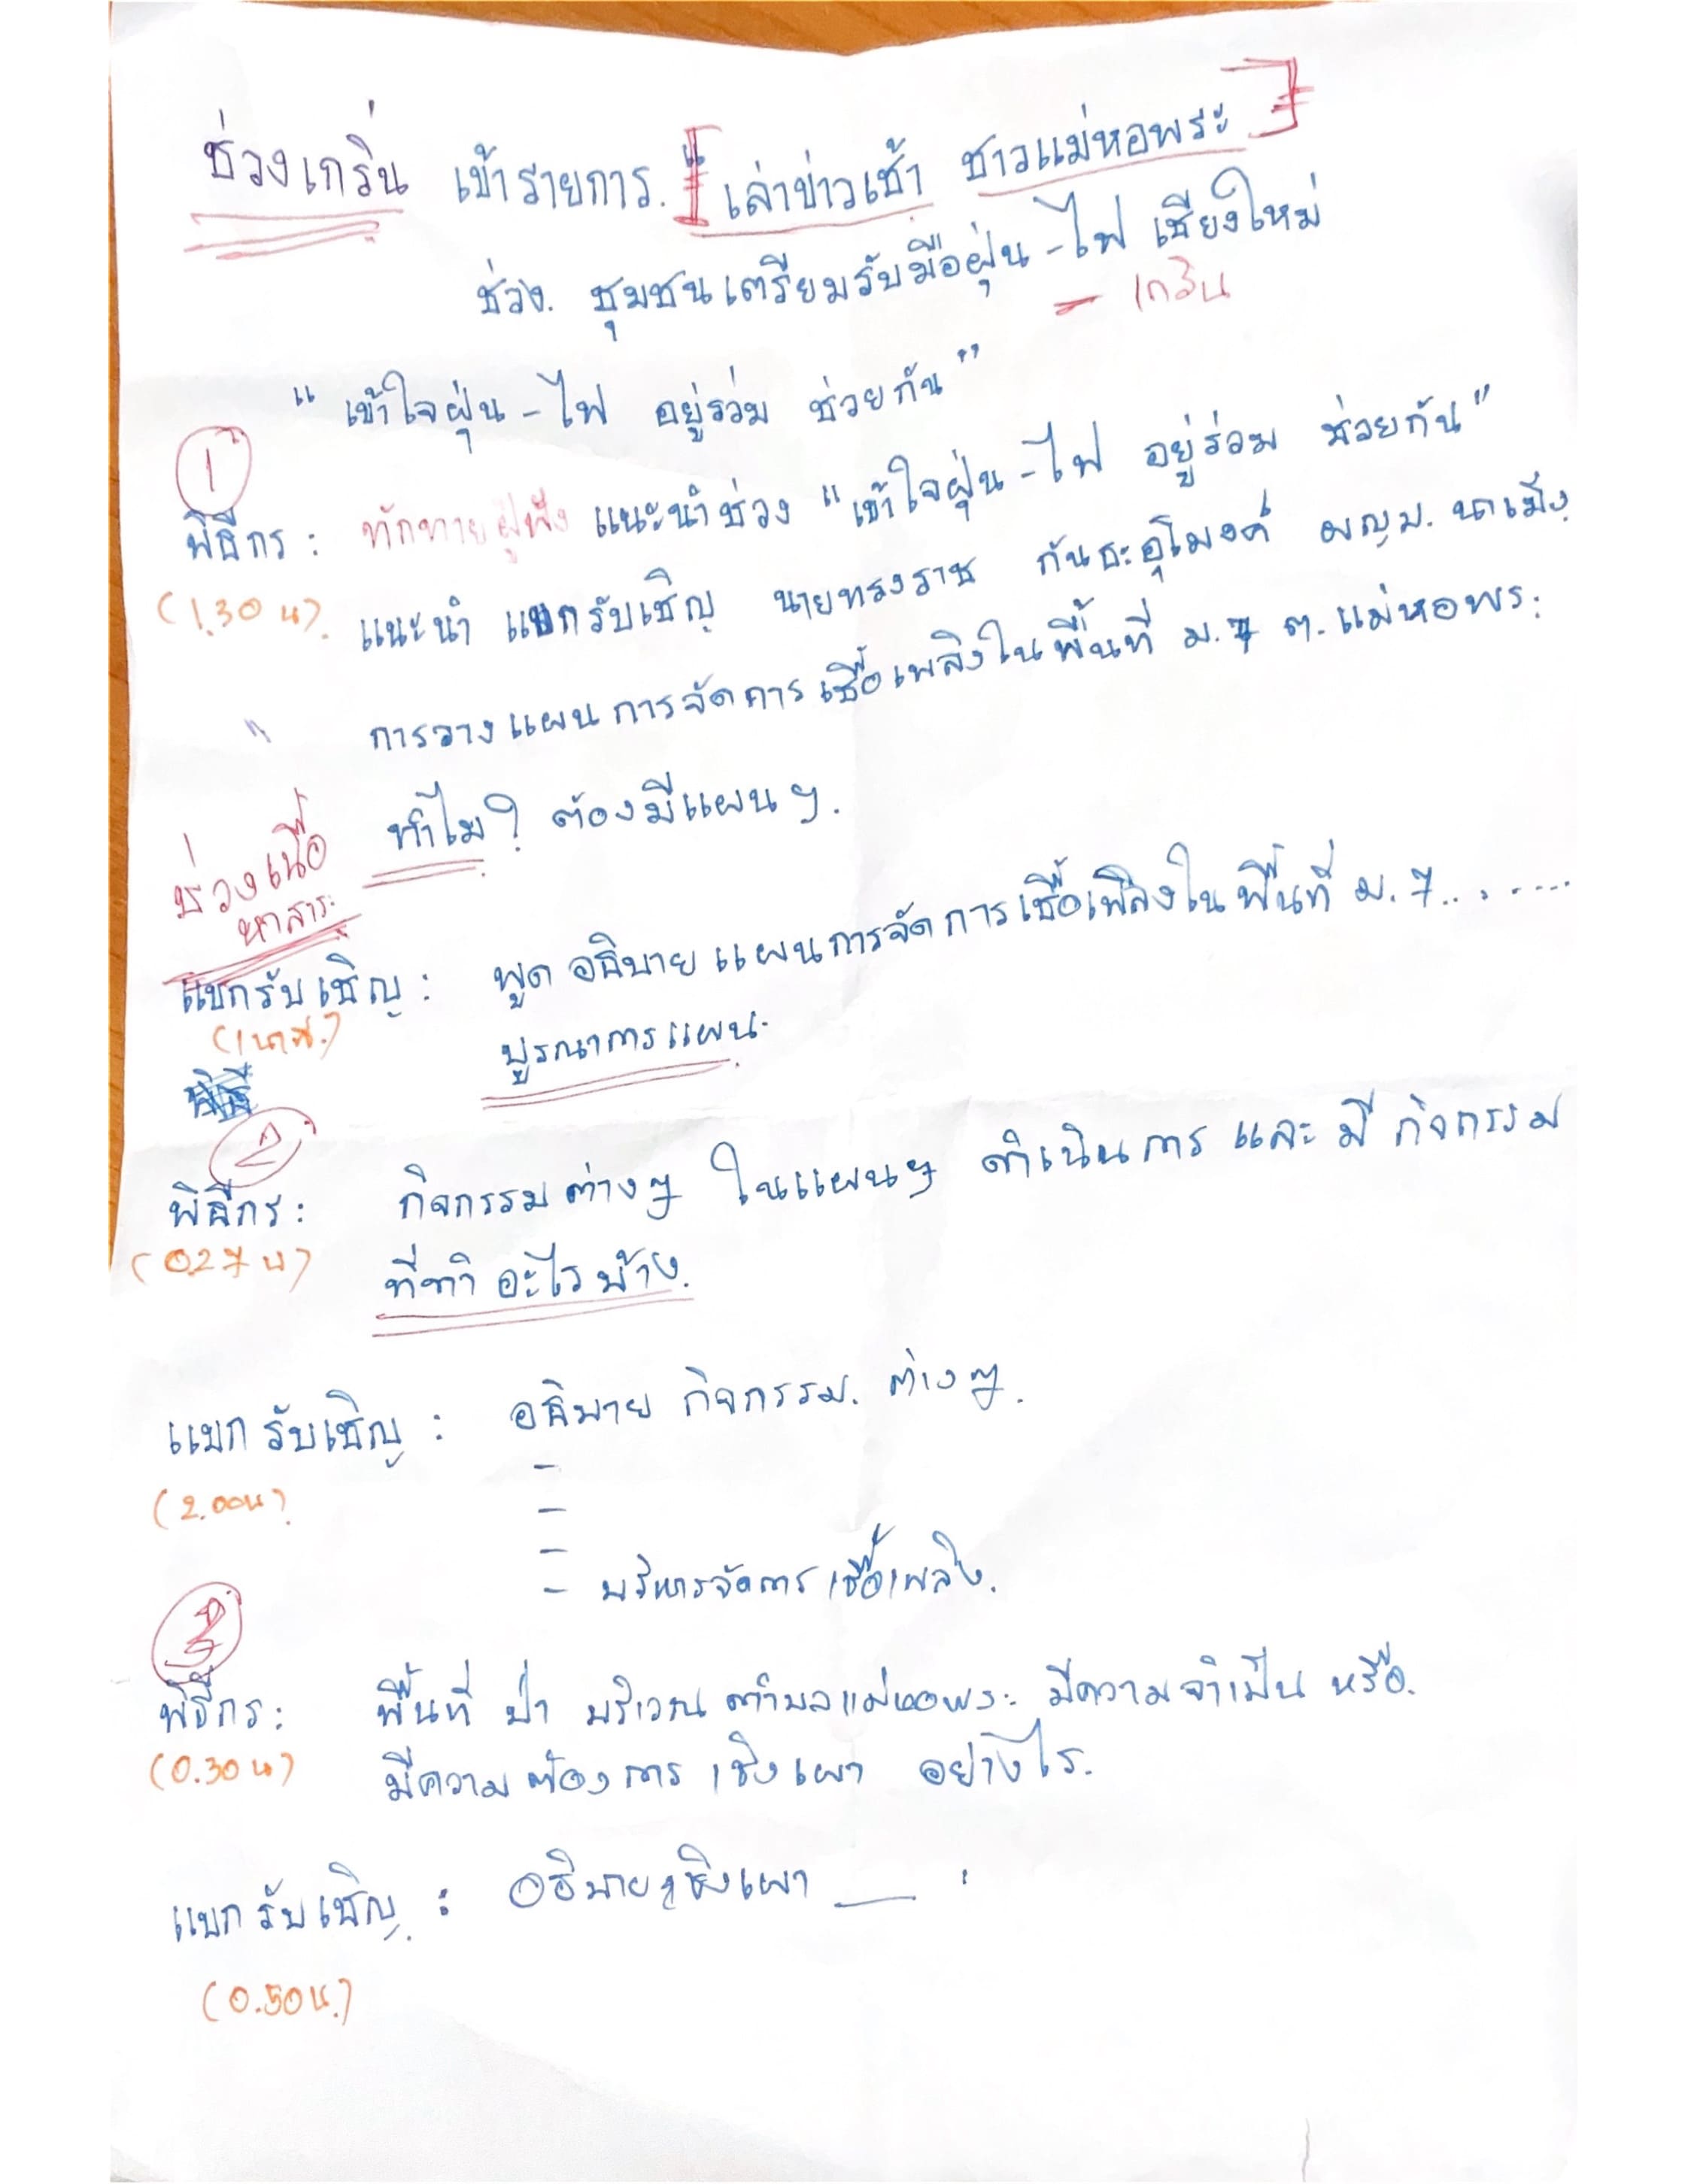 ช่วงเกริ่น เข้ารายการ. " เล่าข่าวเช้า ชาวแม่หอพระ
ช่วง. ชุมชนเตรียมรับมือฝุ่น-ไฟ เชียงใหม่
- เกริ่น
" เข้าใจฝุ่น-ไฟ อยู่ร่วม ช่วยกัน "
1
พิธีกร : ทักทายผู้ฟัง แนะนำช่วง " เข้าใจฝุ่น-ไฟ อยู่ร่วม ช่วยกัน "
(1.30 น). แนะนำ แขกรับเชิญ นายทรงราช กันธะอุโมงค์ ผญม.
" การวางแผนการจัดการเชื้อเพลิงในพื้นที่ ม.7 ต.แม่หอพระ.
ทำไม? ต้องมีแผนฯ.
ช่วงเนื้อ
หาสาระ
แขกรับเชิญ : พูด อธิบาย แผนการจัดการเชื้อเพลิงในพื้นที่ ม.7.........
(1นาที.) บูรณาการแผน.
2
พิธีกร : กิจกรรมต่างๆ ในแผนฯ ดำเนินการ และ มี กิจกรรม
(0.27 น) ที่ทำ อะไรบ้าง.
แขกรับเชิญ : อธิบาย กิจกรรม. ต่างๆ.
(2.00น).
-
-
-
- บริหารจัดการเชื้อเพลิง.
3
พิธีกร : พื้นที่ ป่า บริเวณ ตำบลแม่หอพระ มีความจำเป็น หรือ.
(0.30 น) มีความต้องการ ชิงเผา อย่างไร.
แขกรับเชิญ : อธิบายชิงเผา ___ .
(0.50น.)